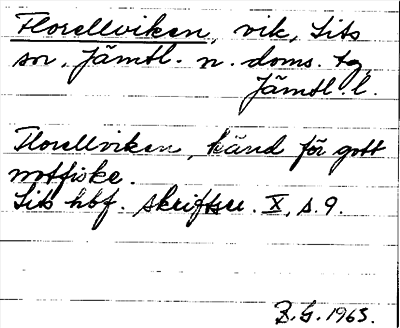 Florellviken, vik, Lits
sn, Jämtl. n. doms. tg,
Jämtl. l.
Florellviken, känd för gott
notfiske.
Lits hbf. skriftser. X, s. 9.
B.G. 1963.